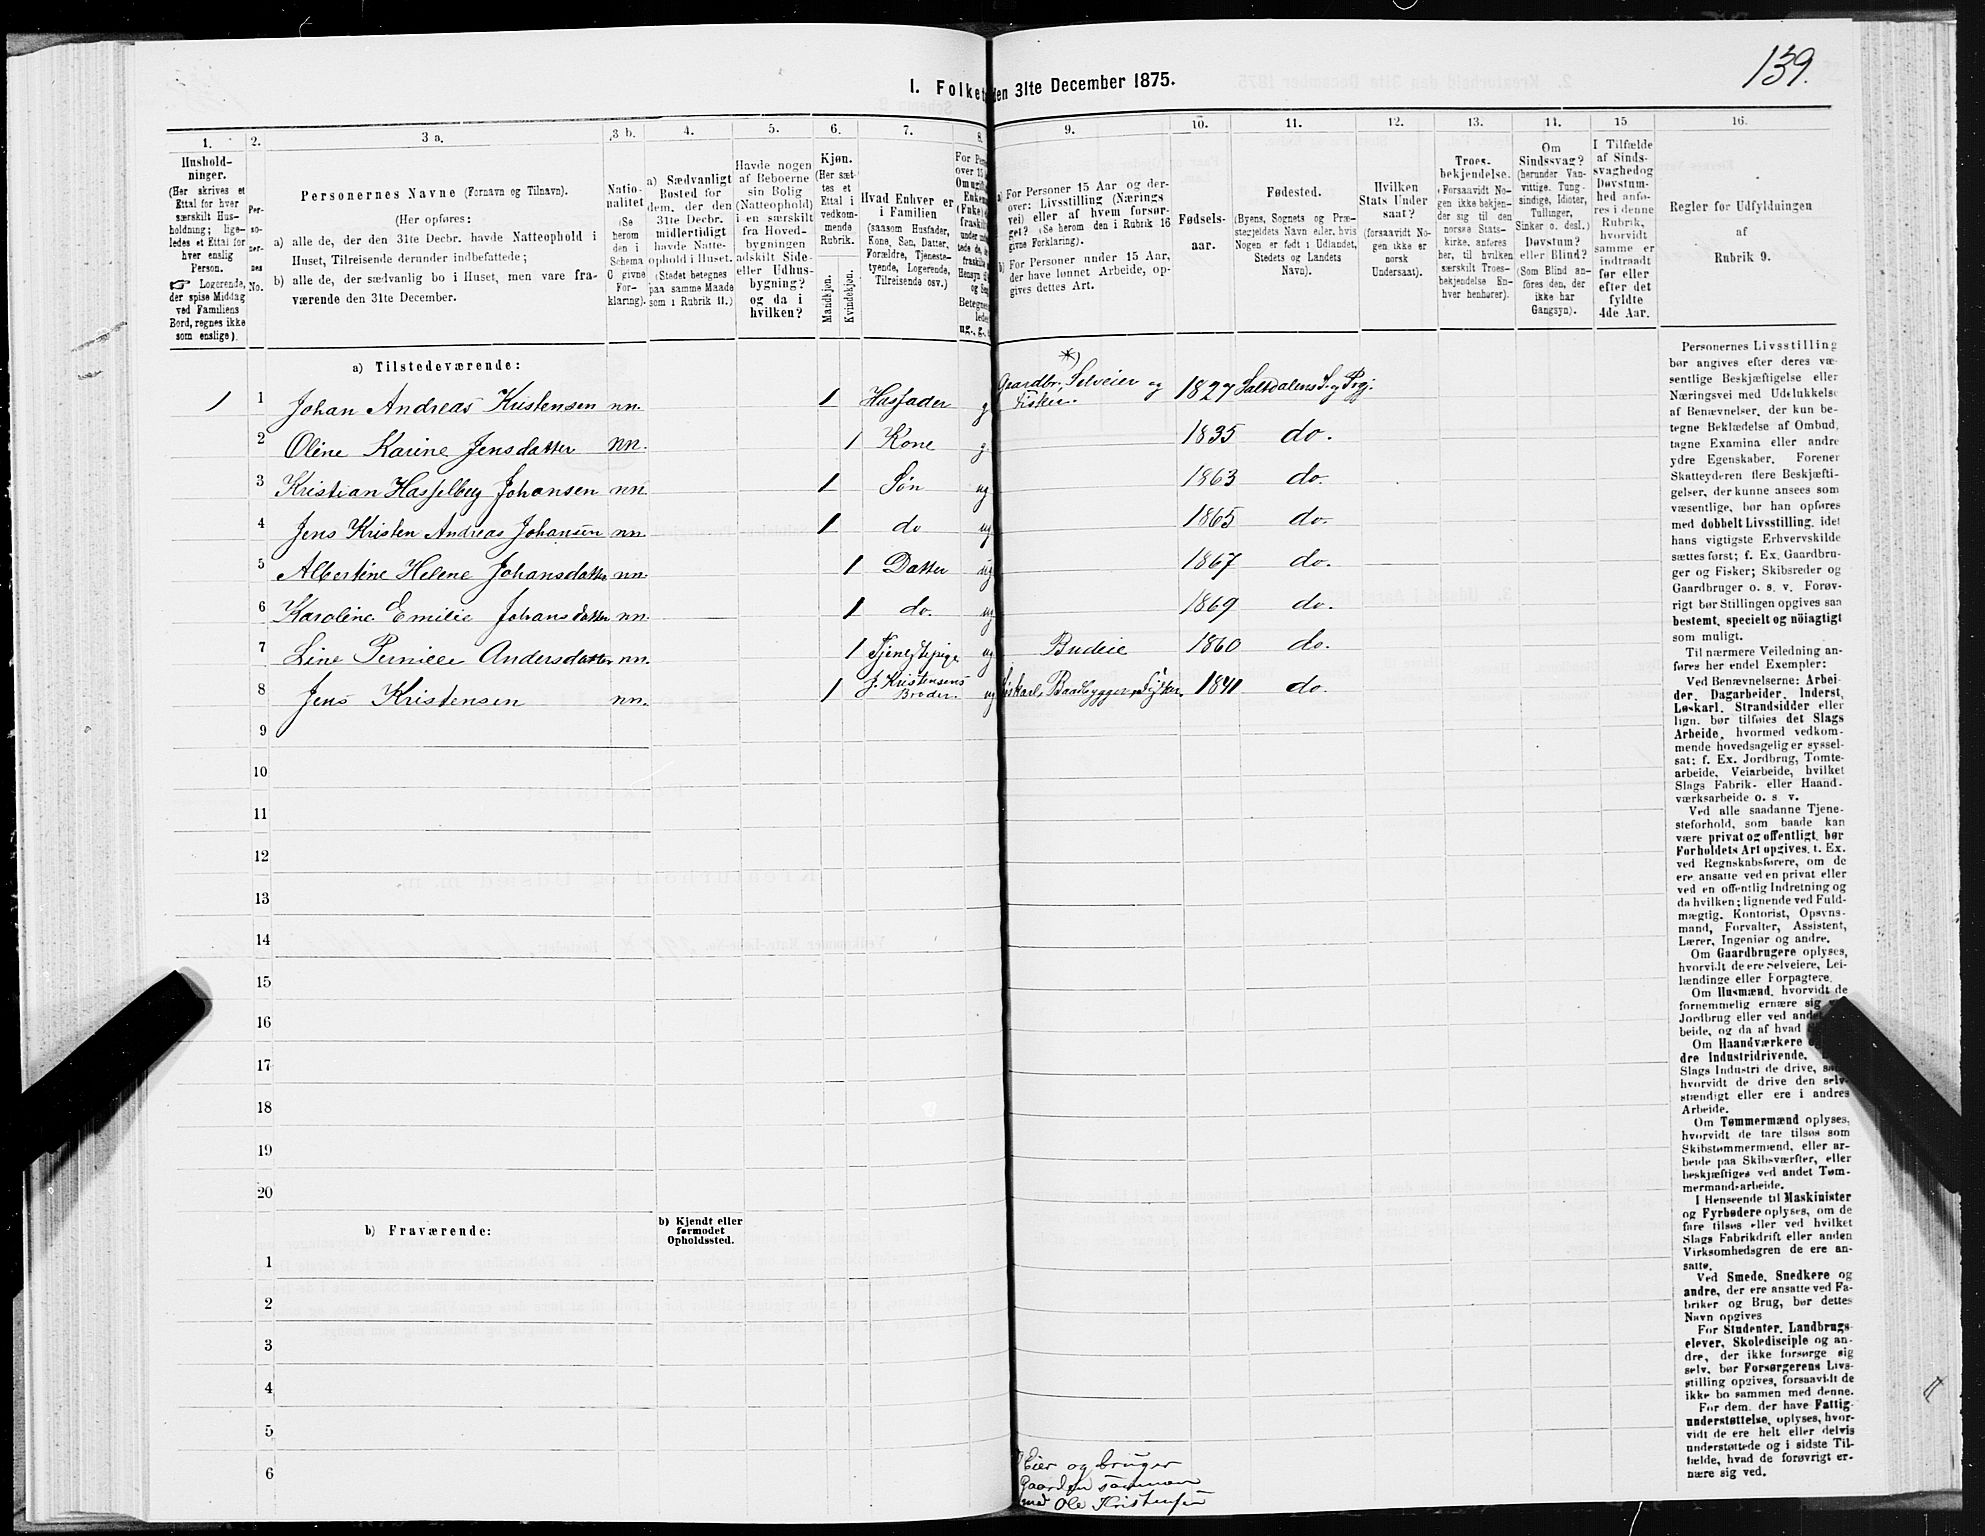 139.
I. Folket
den 31te December 1875.
1. 2. 3 a. 3 b. 4. 5. 6. 7. 8. 9. 10. 11. 12. 13. 14. 15 16.
Hushold-
ninger.
(Her skrives et
Ettal for hver
særskilt Hus-
holdning; lige-
ledes et Ettal for
hver enslig
Person.
☞ Logerende,
der spise Middag
ved Familiens
Bord, regnes ikke
som enslige).
Per-
so-
ner-
nes
No.
Personernes Navne (Fornavn og Tilnavn).
(Her opføres:
a) alle de, der den 31te Decbr. havde Natteophold i
Huset, Tilreisende derunder indbefattede;
b) alle de, der sædvanlig bo i Huset, men vare fra-
værende den 31te December.
Natio-
nalitet
(Se
herom
den i
Schema
C givne
For-
klaring).
a) Sædvanligt
Bosted for
dem, der den
31te Decbr.
midlertidigt
havde Natte-
ophold i Huset.
(Stedet betegnes
paa samme Maade
som i Rubrik 11.)
Havde nogen
af Beboerne
sin Bolig
(Natteophold)
i en særskilt
fra Hoved-
bygningen
adskilt Side-
eller Udhus-
bygning?
og da i
hvilken?
Kjøn.
(Her sæt-
tes et
Ettal i
vedkom-
mende
Rubrik.
Mandkjøn.
Kvindekjøn.
Hvad Enhver er
i Familien
(saasom Husfader,
Kone, Søn, Datter,
Forældre, Tjeneste-
tyende, Logerende,
Tilreisende osv.)
a) For Personer 15 Aar og der-
over: Livsstilling (Nærings
vei) eller af hvem forsør-
get? (Se herom den i Rubrik 16
givne Forklaring).
b) For Personer under 15 Aar,
der have lønnet Arbeide, op-
gives dettes Art.
Fødsels-
aar.
Fødested.
(Byens, Sognets og Præ-
stegjeldets Navn eller, hvis
Nogen er født i Udlandet,
Stedets og Landets
Navn).
Hvilken
Stats Under
saat?
(forsaavidt No-
gen ikke er
norsk
Undersaat).
Troes-
bekjendelse.
(Forsaavidt No-
gen ikke bekjen-
der sig til den
norske Stats-
kirke, anføres
her, til hvilken
særskilt Troes-
bekjendelse En-
hver henhører).
Om
Sindssvag?
(herunder Van-
vittige, Tung-
sindige, Idioter,
Tullinger,
Sinker o. desl.)
Døvstum?
eller Blind?
(Som Blind an-
føres den, der
ikke har
Gangsyn).
I Tilfælde
af Sinds-
svaghed og
Døvstum-
hed anfø-
res i denne
Rubrik,
hvorvidt
samme er
indtraadt
før eller
efter det
fyldte
4de Aar.
Regler for Udfyldningen
af
Rubrik 9.
a) Tilstedeværende:
1 1 Johan Andreas Kristensen nn. 1 Husfader g *) Gaardbr., Selveier og Fisker. 1827 Saltdalens S. og Prgj.
2 Oline Karine Jensdatter nn. 1 Kone g. 1835 do.
3 Kristian Hasselberg Johansen nn. 1 Søn ug 1863 do.
4 Jens Kristen Andreas Johansen nn. 1 do ug 1865 do.
5 Albertine Helene Johansdatter nn. 1 Datter ug 1867 do.
6 Karoline Emilie Johansdatter nn. 1 do. ug 1869 do.
7 Line Pernille Andersdatter nn. 1 Tjenestepige ug Budeie 1860 do.
8 Jens Kristensen nn. 1 J. Kristensens Broder. ug Baadbygger, Fisker 1841 do.
9
10
11
12
13
14
15
16
17
18
19
20
b) Fraværende:
b) Kjendt eller
formodet
Opholdssted.
1
2
3
4
5
6
Eier og bruger
Gaarden sammen
med Ole Kristensen
Personernes Livsstilling
bør angives efter deres væ-
sentlige Beskjæftigelse eller
Næringsvei med Udelukkelse
af Benævnelser, der kun be-
tegne Beklædelse af Ombud,
tagne Examina eller andre
ydre Egenskaber. Forener
Skatteyderen flere Beskjæfti-
gelser, der kunne ansees som
væsentlige, bør han opføres
med dobbelt Livsstilling, idet
hans vigtigste Erhvervskilde
sættes først; f. Ex. Gaardbru-
ger og Fisker; Skibsreder og
Gaardbruger o. s. v. Forøv-
rigt bør Stillingen opgives saa
bestemt, specielt og nöiagtigt
som muligt.
Til nærmere Veiledning an-
føres her endel Exempler:
Ved Benævnelserne: Arbei-
der, Dagarbeider, Inderst,
Løskarl, Strandsidder eller
lign. bør tilføies det Slags
Arbeide, hvormed vedkom-
mende hovedsagelig er syssel-
sat; f. Ex. Jordbrug, Tomte-
arbeide, Veiarbeide, hvilket
Slags Fabrik- eller Haand-
værksarbeide o. s. v.
Ved alle saadanne Tjene-
steforhold, som baade kan
være privat og offentligt, bør
Forholdets Art opgives, f. Ex.
ved Regnskabsførere, om de
ere ansatte ved en privat eller
ved en offentlig Indretning og
da hvilken; lignende ved Fuld-
mægtig, Kontorist, Opsyns-
mand, Forvalter, Assistent,
Lærer, Ingeniør og andre.
Om Gaardbrugere oplyses,
hvorvidt de ere Selveiere, Lei-
lændinge eller Forpagtere.
Om Husmænd, hvorvidt de
fornemmelig ernære sig
Jordbrug eller ved
beide, og da af hvad
Om Haandværkere
dre Industridrivende,
Slags Industri de drive,
hvorvidt de drive den selv-
stændigt eller ere i andres
Arbeide.
Om Tømmermænd oplyses,
hvorvidt de fare tilsøs som
Skibstømmermænd, eller ar-
beide paa Skibsværfter, eller
beskjæftiges ved andet Tøm-
mermandsarbeide.
I Henseende til Maskinister
og Fyrbødere oplyses, om de
fare tilsøs eller ved hvilket
Slags Fabrikdrift eller anden
Virksomhedsgren de ere an-
satte.
Ved Smede, Snedkere og
andre, der ere ansatte ved Fa-
briker og Brug, bør dettes
Navn opgives
For Studenter, Landbrugs-
elever, Skoledisciple og an-
dre, der ikke forsørge sig
selv, bør Forsørgerens Livs-
stilling opgives, forsaavidt de
ikke bo sammen med denne.
For dem, der have Fattig-
understøttelse, oplyses, hvor-
vidt de ere helt eller delvis
understøttede og i sidste Til-
fælde, hvad de forøvrigt er-
nære sig ved.